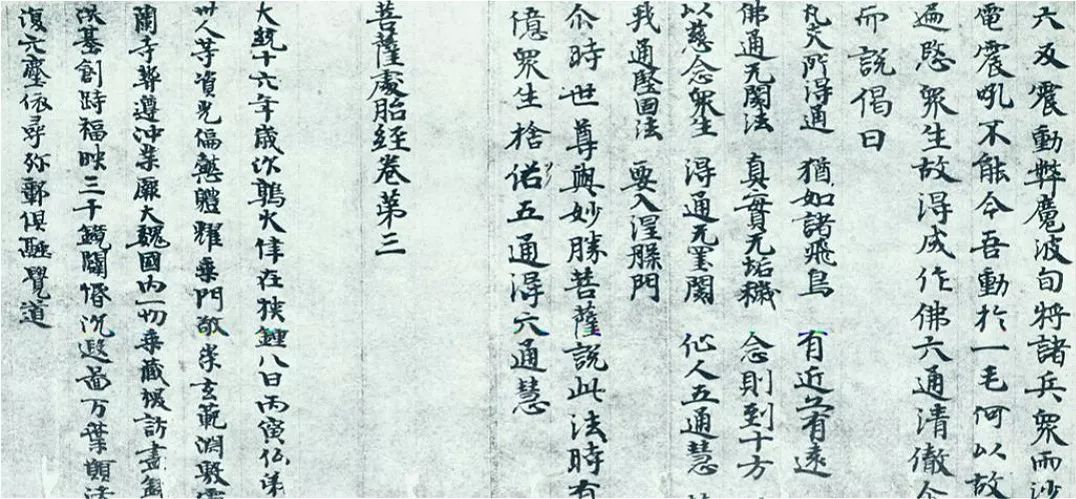 六反震動弊魔波旬將諸兵眾雨沙
電震吼不能令吾動於一毛何以故
遍愍眾生故得成作佛六通清徹今
而說偈曰
凡夫所得通 猶如諸飛鳥 有近亦有遠
佛通无閡法 真實无垢穢 念則到十方
以慈念眾生 得通无罣閡 仙人五通慧
我通堅固法 要入涅槃門
尒時世尊與妙勝菩薩說此法時有
億眾生捨俗五通得六通慧
菩薩處胎經卷第三
大統十六年歲次鶉火律在狹鍾八日丙寅仏弟
卅人等資光偏慤體耀乘門敬崇玄範淵敷
蘭寺葬遵沖業廓大魏國內一切乘藏搜訪盡
洪基創跱福映三千鏡闡沉遐啚万葉願
復六塵依尋弥鄴俱融覺道